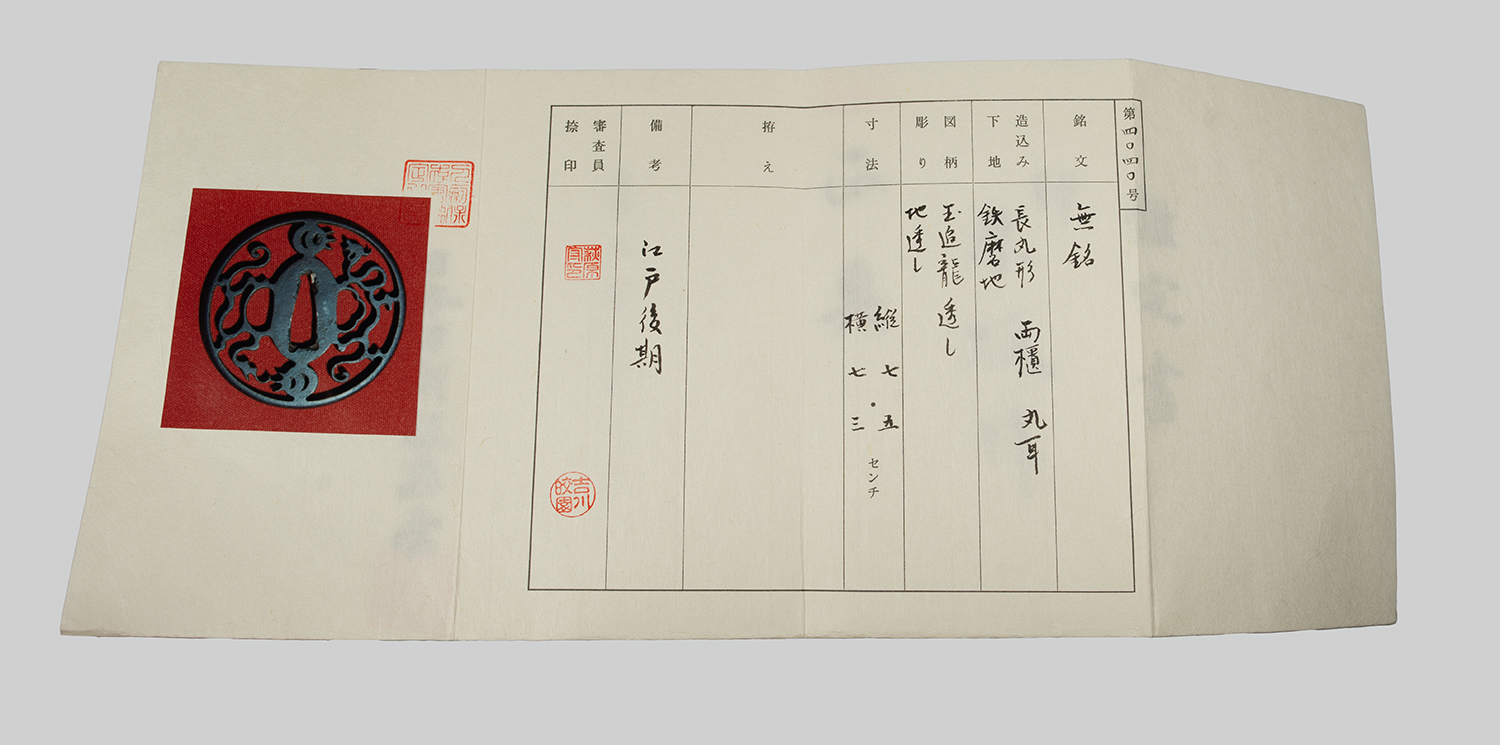 第四〇四〇号
銘文
無銘
造込み
下地
長丸形 両櫃 丸耳
鉄磨地
図柄
彫り
玉追龍透し
地透し
寸法
縦 七・五
横 七・三
センチ
拵え
備考
江戸後期
審査員
捺印
萩原
吉川
皎園